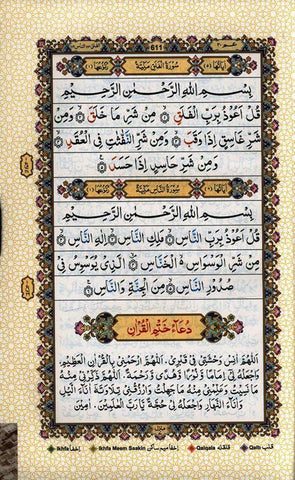 611
سُوْرَةُ الْفَلَقِ مَكِّيَّةٌ
بِسْمِ اللهِ الرَّحْمٰنِ الرَّحِيْمِ
قُلْ اَعُوْذُ بِرَبِّ الْفَلَقِ ۙ مِنْ شَرِّ مَا خَلَقَ ۙ وَمِنْ
شَرِّ غَاسِقٍ اِذَا وَقَبَ ۙ وَمِنْ شَرِّ النَّفّٰثٰتِ فِى الْعُقَدِ ۙ
وَمِنْ شَرِّ حَاسِدٍ اِذَا حَسَدَ
سُوْرَةُ النَّاسِ مَكِّيَّةٌ
بِسْمِ اللهِ الرَّحْمٰنِ الرَّحِيْمِ
قُلْ اَعُوْذُ بِرَبِّ النَّاسِ ۙ مَلِكِ النَّاسِ ۙ اِلٰهِ النَّاسِ ۙ
مِنْ شَرِّ الْوَسْوَاسِ ۙ الْخَنَّاسِ ۙ الَّذِىْ يُوَسْوِسُ فِىْ
صُدُوْرِ النَّاسِ ۙ مِنَ الْجِنَّةِ وَالنَّاسِ
دُعَاءُ خَتْمِ الْقُرْاٰن
اَللّٰهُمَّ اٰنِسْ وَحْشَتِىْ فِىْ قَبْرِىْ. اَللّٰهُمَّ ارْحَمْنِىْ بِالْقُرْاٰنِ الْعَظِيْمِ.
وَاجْعَلْهُ لِىْ اِمَامًا وَّنُوْرًا وَّهُدًى وَّرَحْمَةً. اَللّٰهُمَّ ذَكِّرْنِىْ مِنْهُ
مَا نَسِيْتُ وَعَلِّمْنِىْ مِنْهُ مَا جَهِلْتُ وَارْزُقْنِىْ تِلَاوَتَهٗ اٰنَآءَ الَّيْلِ
وَاٰنَآءَ النَّهَارِ وَاجْعَلْهُ لِىْ حُجَّةً يَّارَبَّ الْعٰلَمِيْنَ. اٰمِيْنَ
Ikhfa اخفا Ikhfa Meem Saakin اخفا میم ساکن Qalqala قلقلہ Qalb قلب